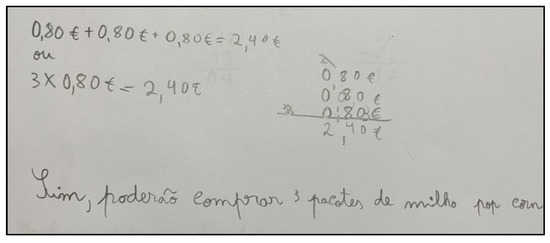 0,80€ + 0,80€ + 0,80€ = 2,40€
ou
3 x 0,80€ = 2,40€
2
0 80€
0,80€
0,80€
2,40€
Sim, poderão comprar 3 pacotes de milho pop corn